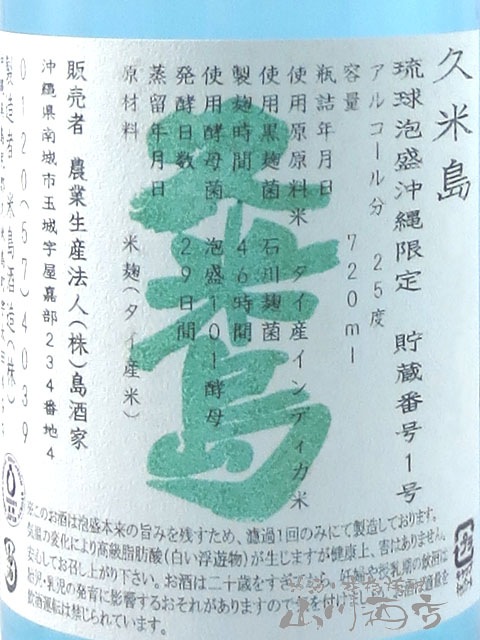 久米島
琉球泡盛沖縄限定 貯蔵番号1号
アルコール分 25度
容量 720ml
瓶詰年月日
使用原料米 タイ産インディカ米
使用黒麹菌 石川麹菌
製麹時間 46時間
使用酵母菌 泡盛101酵母
発酵日数 29日間
蒸留年月日
原材料 米麹(タイ産米)
久米島
販売者 農業生産法人(株)島酒家
沖縄県南城市玉城字屋嘉部234番地4
0120(57)4039
製造者 米島酒造(株)
※このお酒は泡盛本来の旨みを残すため、濾過1回のみにて製造しております。
気温の変化により高級脂肪酸(白い浮遊物)が生じますが健康上、害はありません。
安心してお召し上がり下さい。お酒は二十歳をすぎてから。妊娠中や授乳期の飲酒は
胎児・乳児の発育に影響するおそれがありますので気を付け
飲酒運転は禁じられています。
山川酒店